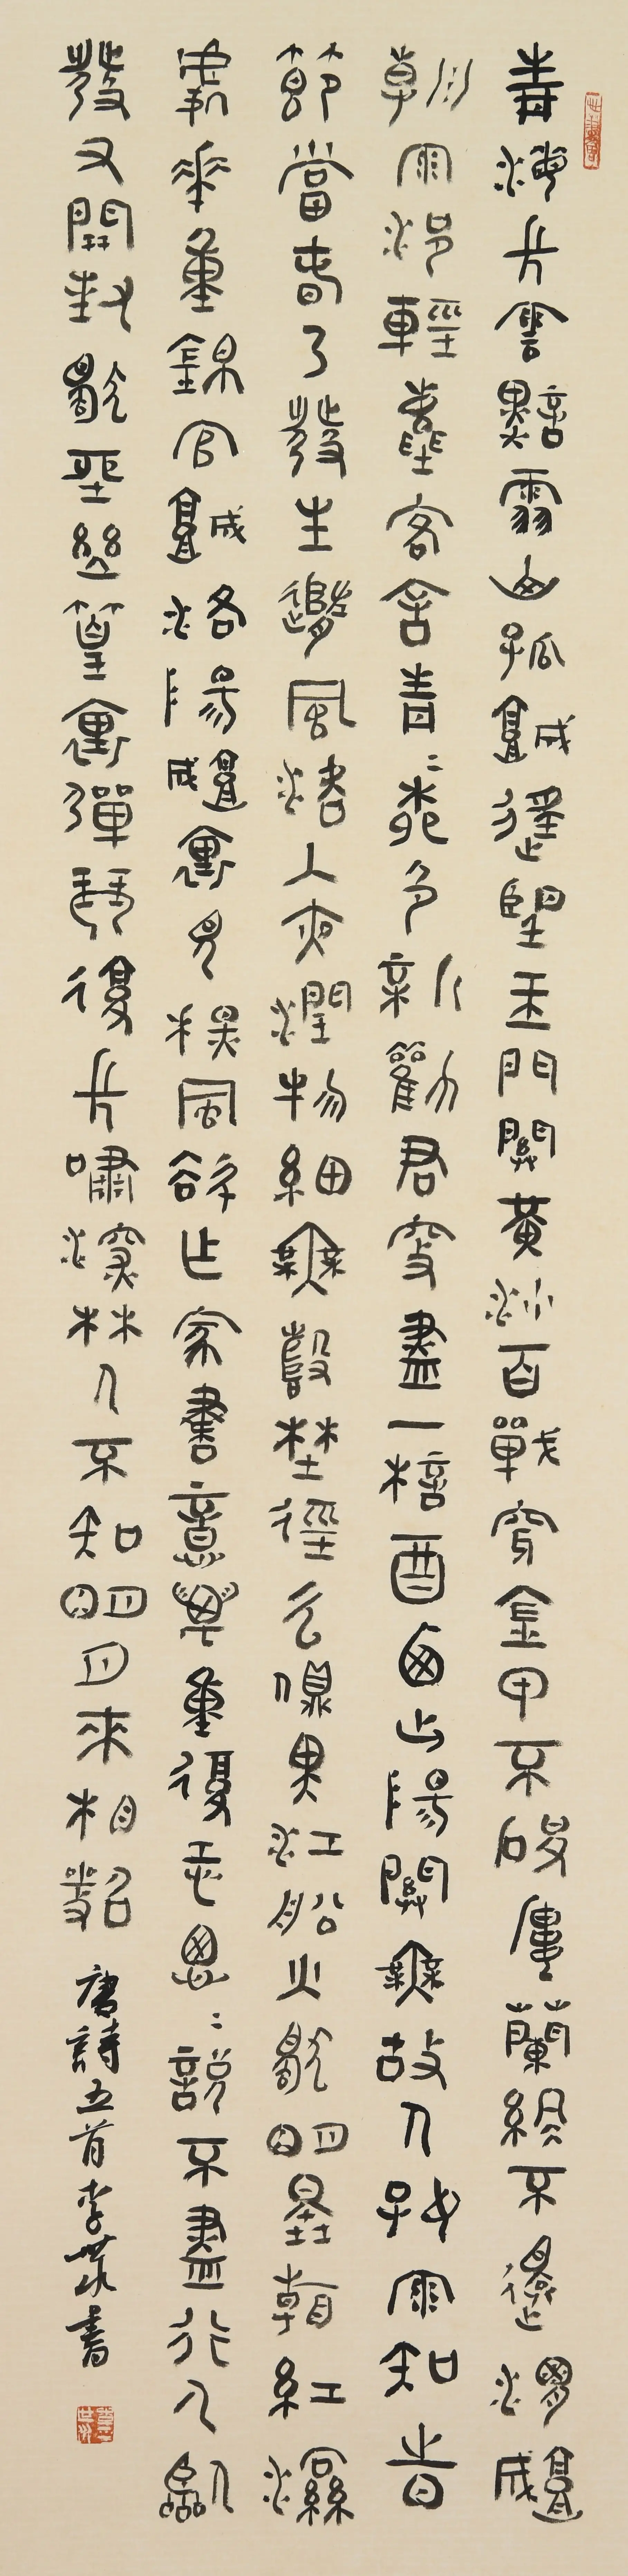 青海長雲暗雪山孤城遙望玉門關黃沙百戰穿金甲不破樓蘭終不還渭城
朝雨浥輕塵客舍青〻柳色新勸君更盡一杯酒西出陽關無故人好雨知時
節當春乃發生隨風潛入夜潤物細無聲野徑雲俱黑江船火獨明曉看紅濕
處花重錦官城洛陽城裏見秋風欲作家書意萬重復恐悤〻說不盡行人臨
發又開封獨坐幽篁裏彈琴復長嘯深林人不知明月來相照 唐詩五首 李書